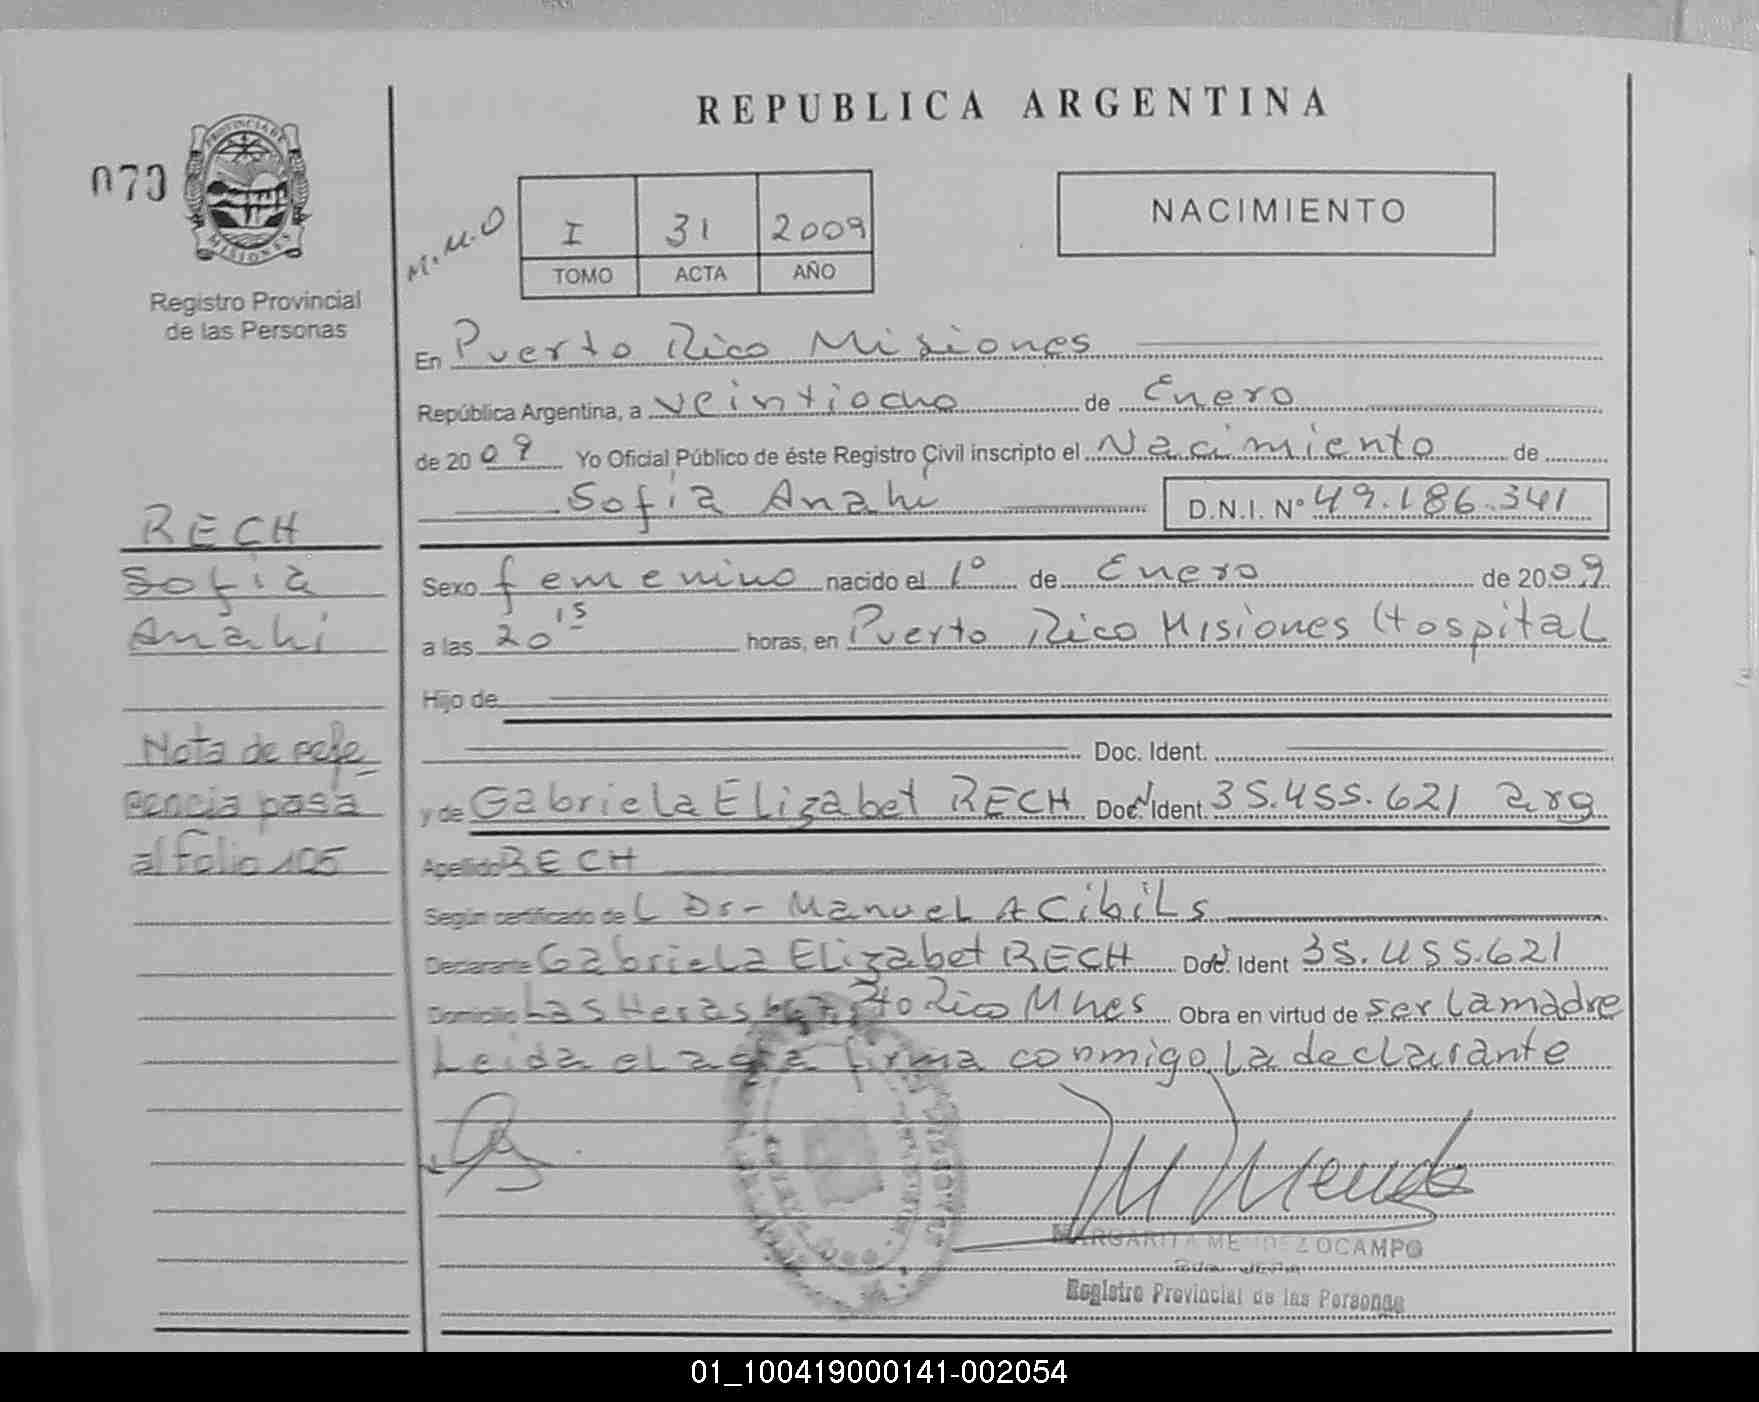 REPUBLICA ARGENTINA
073
PROVINCIA DE
MISIONES
Registro Provincial
de las Personas
M.M.O
I 31 2009
TOMO ACTA AÑO
NACIMIENTO
En Puerto Rico Misiones
República Argentina, a veintiocho de Enero
de 2009 Yo Oficial Público de éste Registro Civil inscripto el Nacimiento de
Sofia Anahi D.N.I. N° 49.186.341
RECH
Sofia
Anahi
Sexo femenino nacido el 1° de Enero de 2009
a las 20 15 horas, en Puerto Rico Misiones Hospital
Hijo de
Doc. Ident.
y de Gabriela Elizabet RECH Doc. Ident. 35.455.621 arg
Apellido RECH
Nota de refe
rencia pasa
al folio 105
Según certificado de L Dr- Manuel A Cibils
Declarante Gabriela Elizabet RECH Doc. Ident 35.455.621
Domicilio Las Heras Pto Rico Mnes Obra en virtud de ser la madre
Leida el acta firma conmigo la declarante
MARGARITA MENDEZ OCAMPO
Registro Provincial de las Personas
01_100419000141-002054